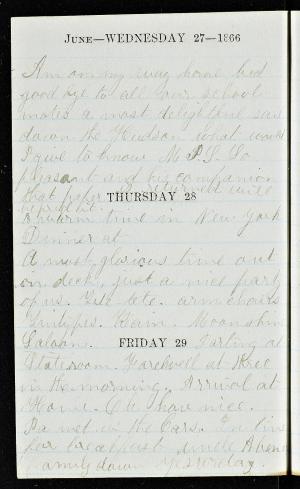 JUNE—WEDNESDAY 27—1866
Am on my way home bid
good bye to all our school
mates a most delightful sail
down the Hudson what would
I give to know M. P. S. So
pleasant and his companion
that
THURSDAY 28
A warm time in New York
Dinner at
A most glorious time out
on deck, just a nice part
of us. Gid etc. arm chairs
Moonshine
Saloon.
FRIDAY 29
Stateroom. Farewell at three
in the morning. Arrival at
Home. Oh how nice.
Pa met in the Cars. In time
for breakfast uncle
family down yesterday.